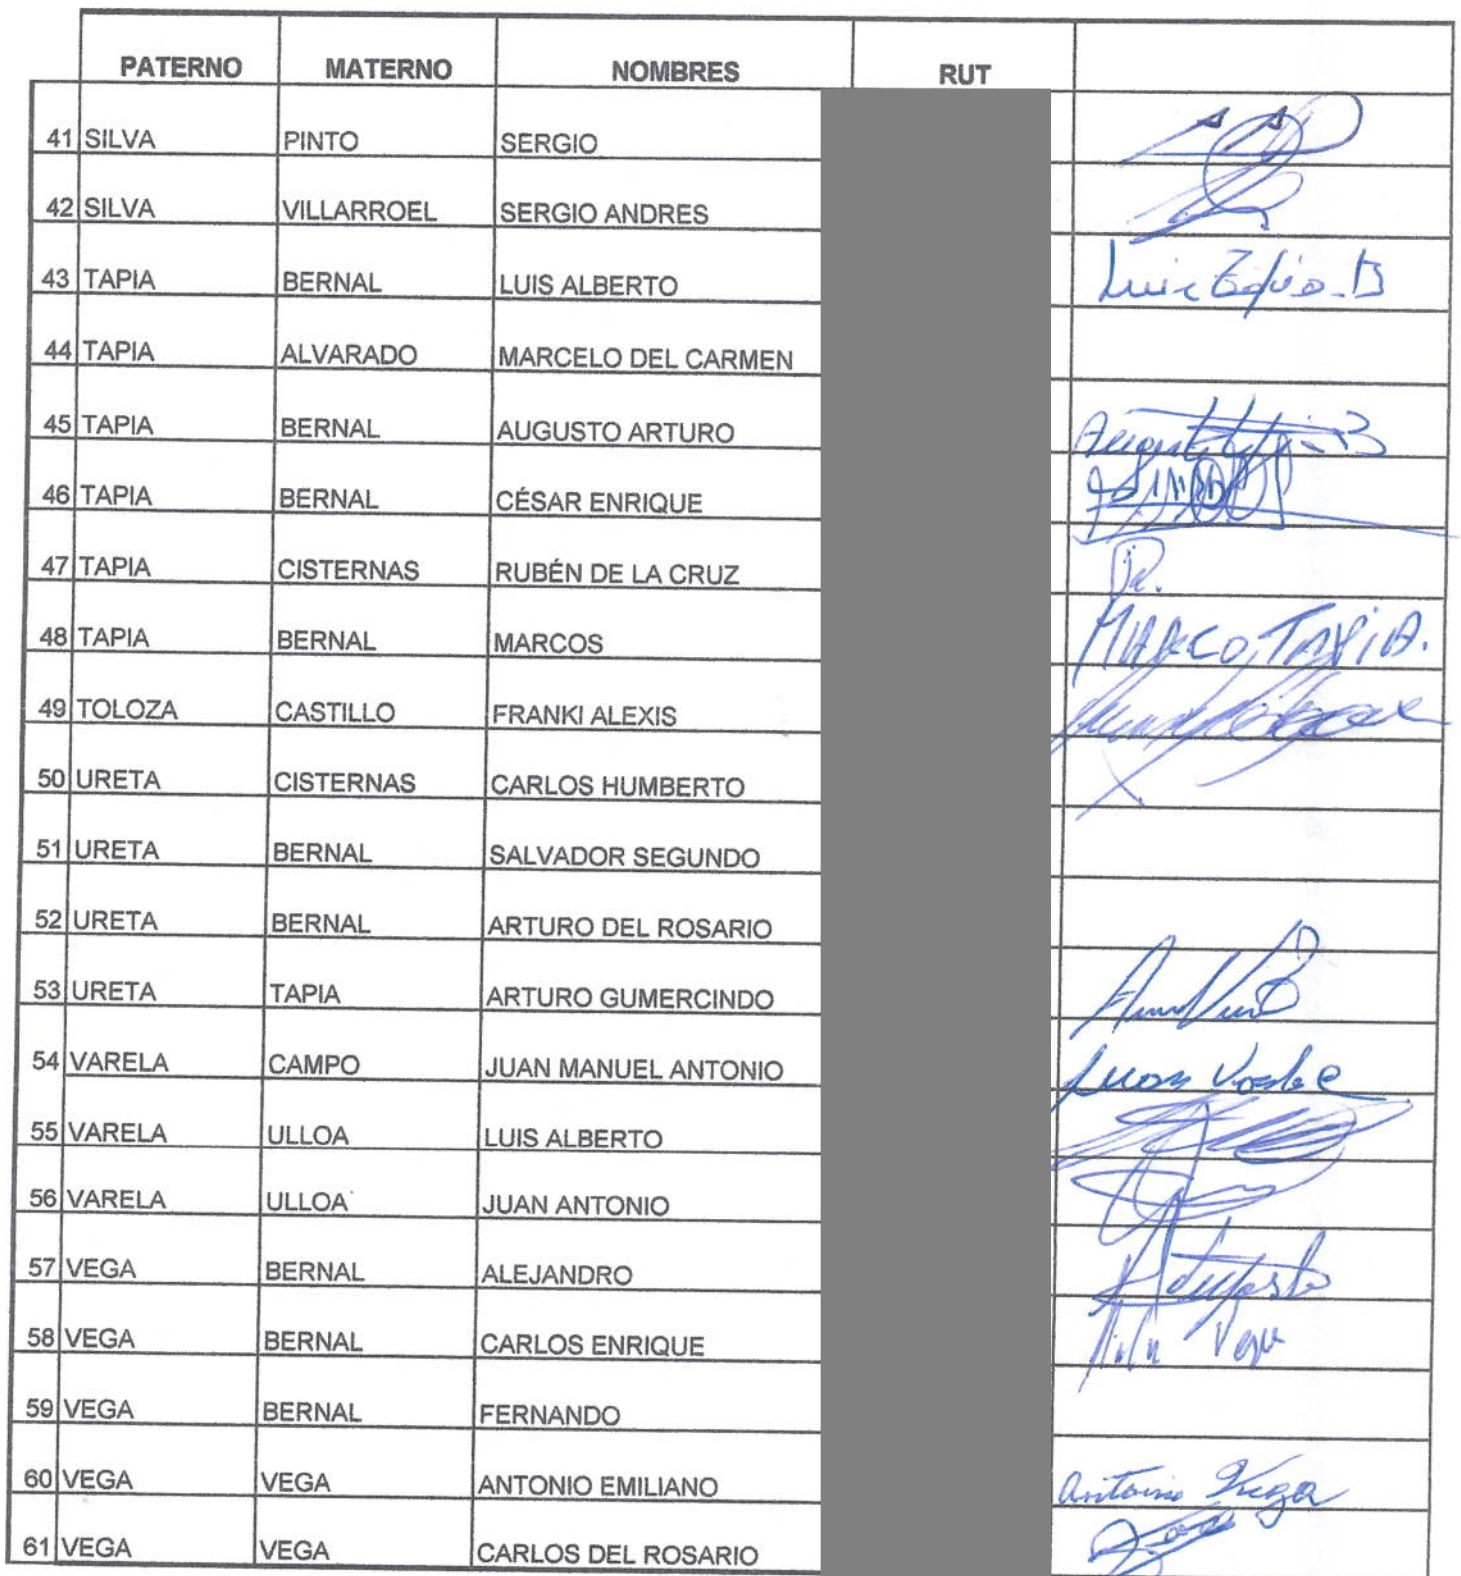 PATERNO MATERNO NOMBRES RUT
41 SILVA PINTO SERGIO
42 SILVA VILLARROEL SERGIO ANDRES
43 TAPIA BERNAL LUIS ALBERTO Luis Tapia B
44 TAPIA ALVARADO MARCELO DEL CARMEN
45 TAPIA BERNAL AUGUSTO ARTURO
46 TAPIA BERNAL CÉSAR ENRIQUE
47 TAPIA CISTERNAS RUBÉN DE LA CRUZ
48 TAPIA BERNAL MARCOS MARCO TAPIA.
49 TOLOZA CASTILLO FRANKI ALEXIS
50 URETA CISTERNAS CARLOS HUMBERTO
51 URETA BERNAL SALVADOR SEGUNDO
52 URETA BERNAL ARTURO DEL ROSARIO
53 URETA TAPIA ARTURO GUMERCINDO
54 VARELA CAMPO JUAN MANUEL ANTONIO Juan
55 VARELA ULLOA LUIS ALBERTO
56 VARELA ULLOA JUAN ANTONIO
57 VEGA BERNAL ALEJANDRO
58 VEGA BERNAL CARLOS ENRIQUE Vega
59 VEGA BERNAL FERNANDO
60 VEGA VEGA ANTONIO EMILIANO Antonio Vega
61 VEGA VEGA CARLOS DEL ROSARIO